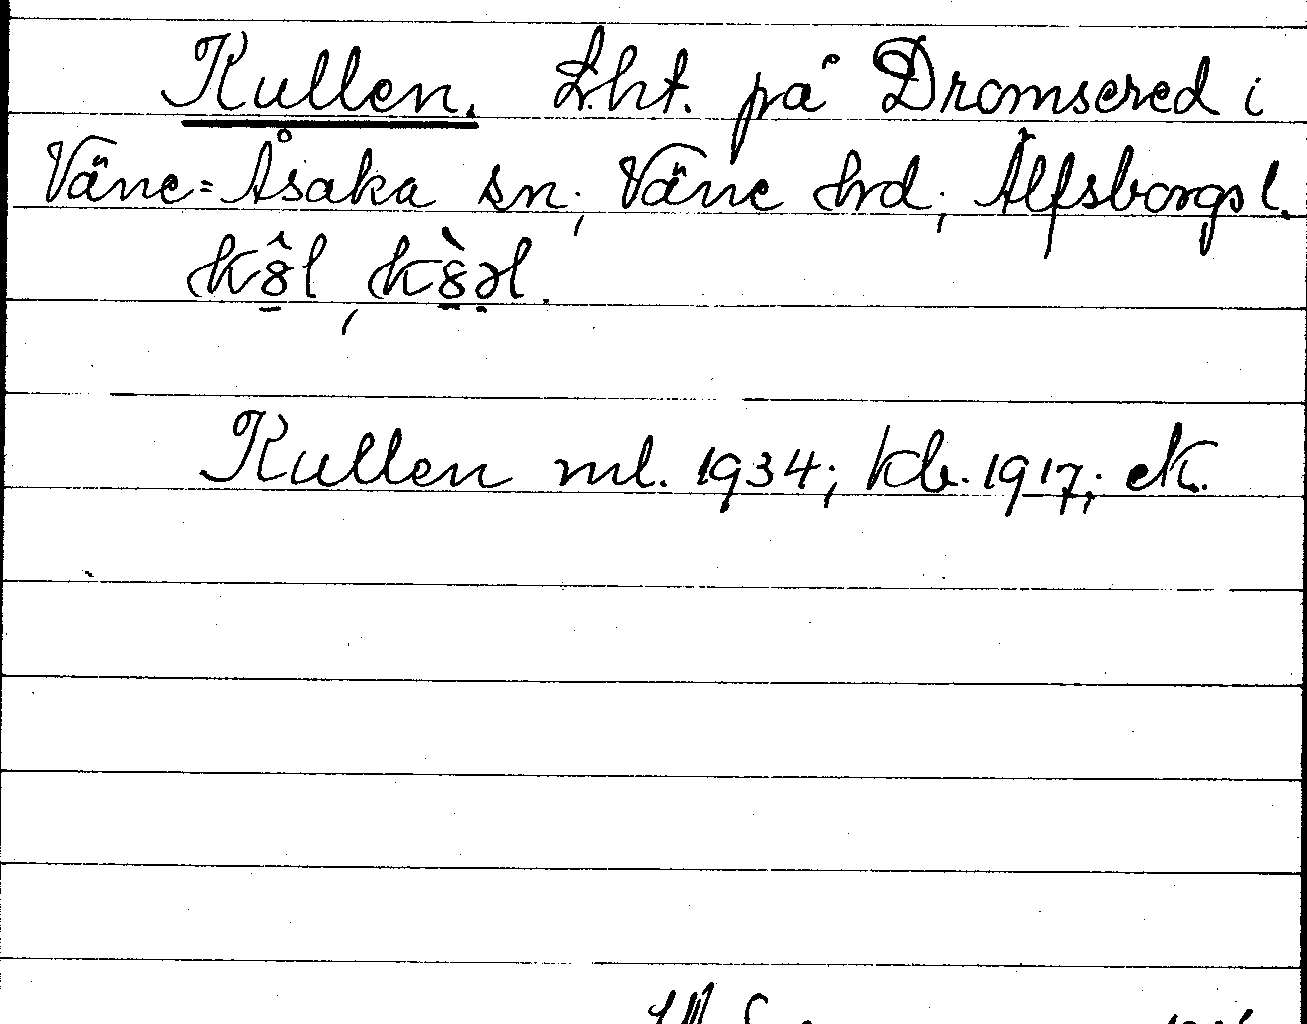 Kullen. Lht. på Dromsered i
Väne-Åsaka sn; Väne hrd; Älfsborgs l.
Kullen ml. 1934; kb. 1917; ek.